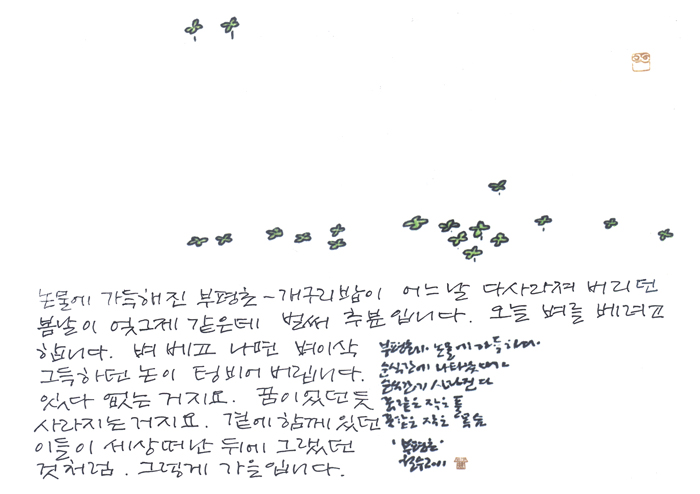 논물에 가득해진 부평초 - 개구리밥이 어느날 다사라져 버리던
봄날이 엊그제 같은데 벌써 추분입니다. 오늘 벼를 베려고
합니다. 벼 베고 나면 벼이삭
그득하던 논이 텅비어 버립니다.
있다 없는 거지요. 꿈이 있던 듯
사라지는 거지요. 곁에 함께 있던
이들이 세상떠난 뒤에 그랬던
것처럼. 그렇게 가을입니다.
부평초가 논물에 가득하다.
순식간에 나타났다가
순식간에 사라진다
꿈같은 작은 풀
꿈같은 작은 목숨
'부평초'